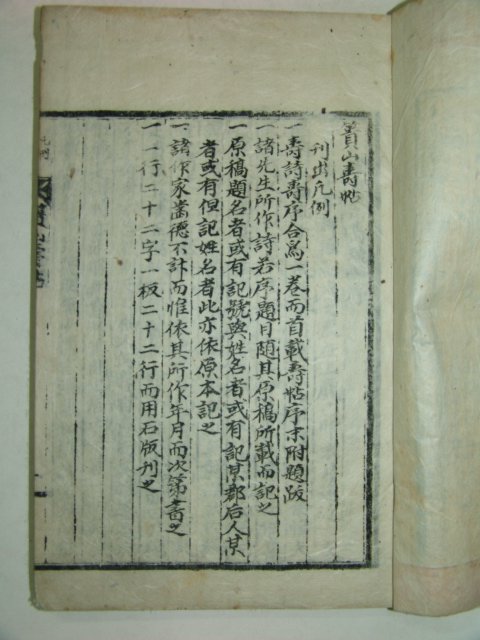 蕢山壽帖
刊出凡例
一壽詩壽序合爲一卷而首載壽帖序末附題跋
一諸先生所作詩若序題目隨其原稿所載而記之
一原稿題名者或有記號與姓名者或有記某郡后人某
者或有但記姓名者此亦依原本記之
一諸作家當德不計而惟依其所作年月而次第書之
一一行二十二字一板二十二行而用石版刊之
凡例